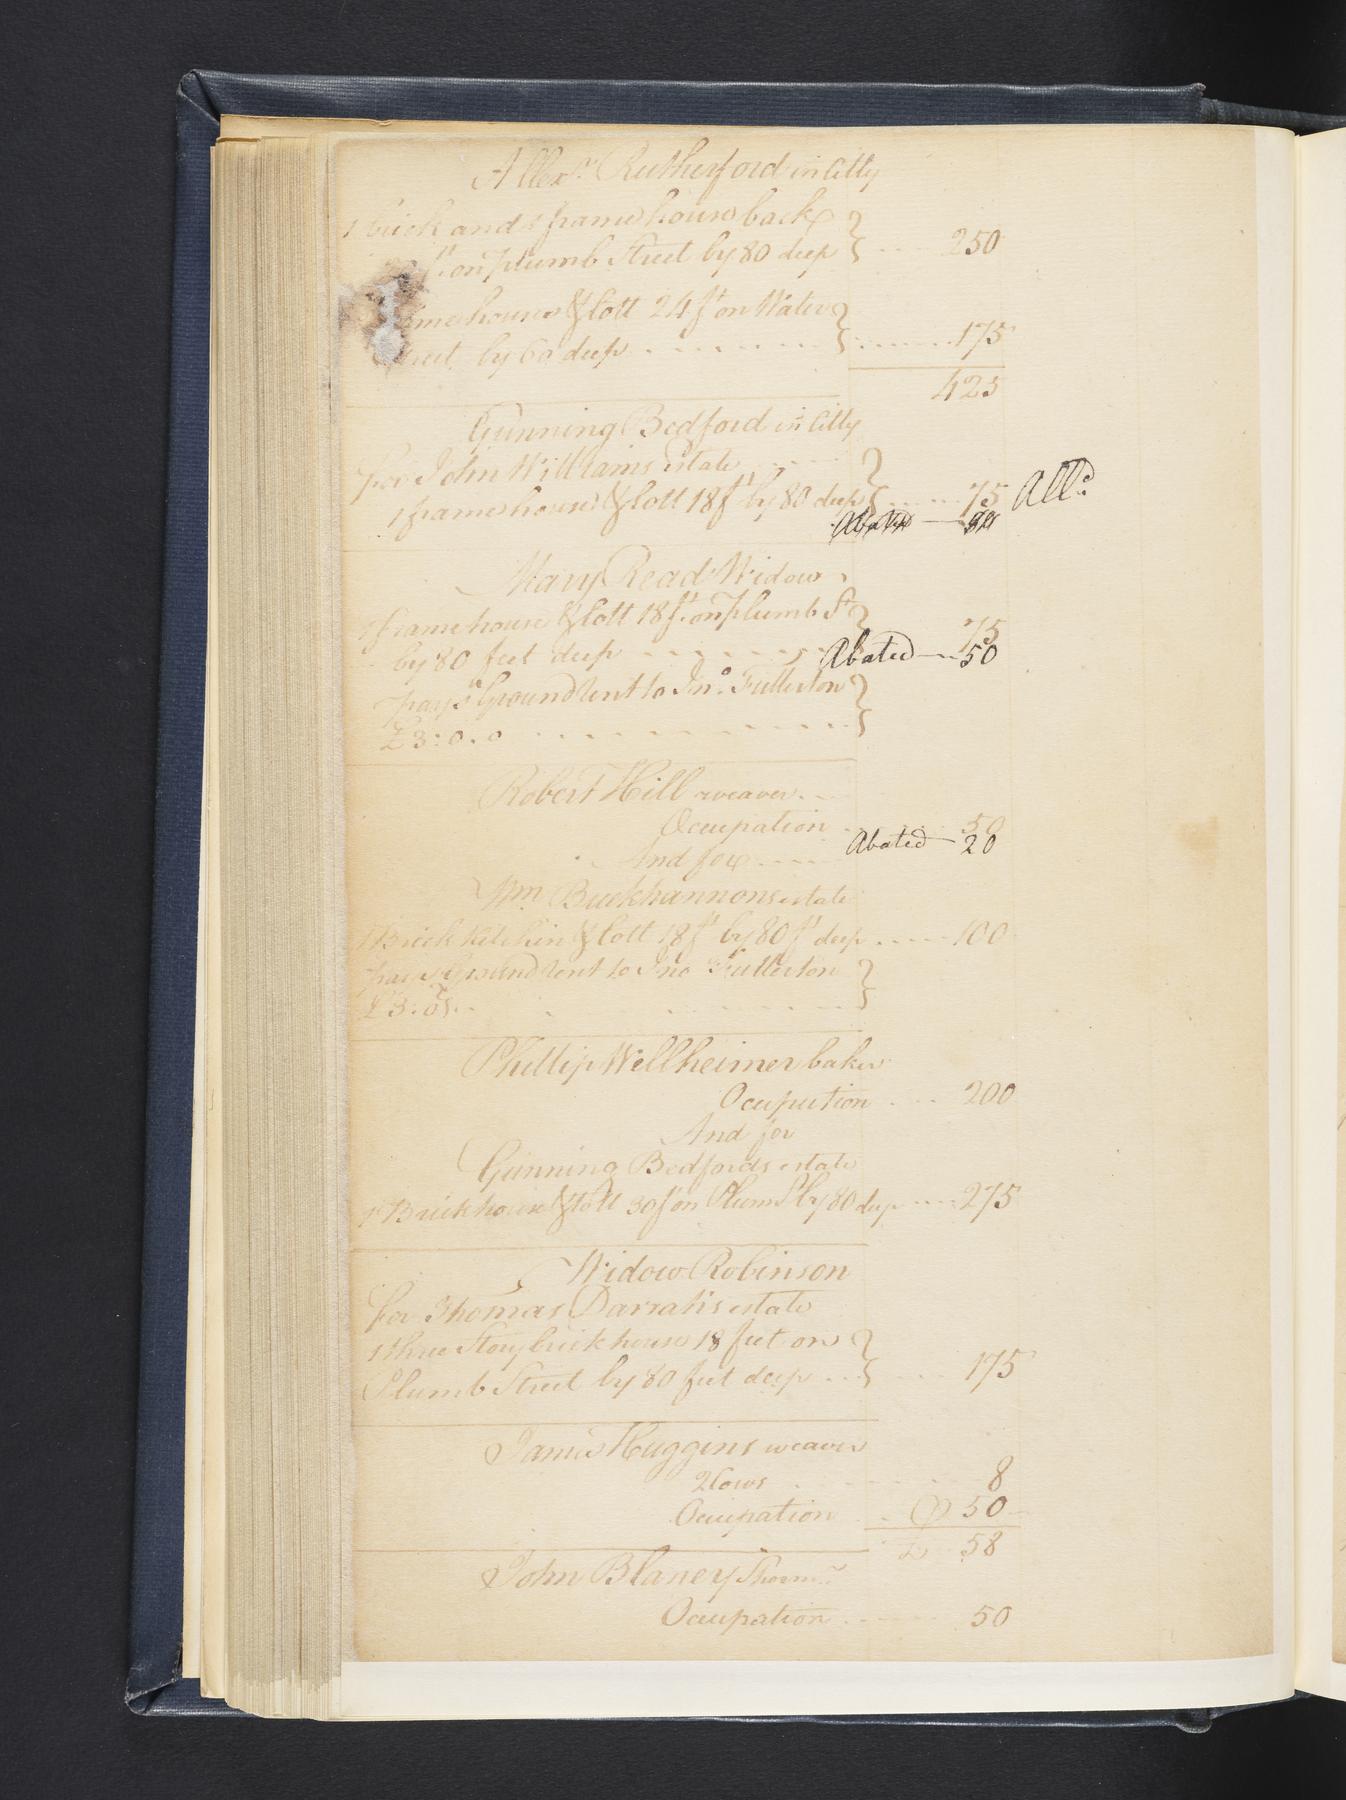 Allexr. Rutherford in Citty
1 brick and 1 frame house back
ft. on Plumb Street by 80 deep .... 250
frame house & lott 24 ft on Water
Street by 60 deep .... 175
425
Gunning Bedford in Citty
for John Williams estate
1 frame house & lott 18 ft by 80 deep .... 75 Alld.
Abated
Mary Read Widow
1 frame house & lott 18 ft. on Plumb St
by 80 feet deep .... 75
Abated — 50
pays Ground Rent to Jno. Fullerton
£3:0.0
Robert Hill weaver
Ocupation .... 50
Abated — 20
And for
Wm. Buckhannons estate
1 Brick Kitchin & lott 18 ft by 80 ft deep .... 100
pays Ground Rent to Jno Fullerton
£3:0s.
Phillip Wellheimer baker
Ocupution .... 200
And for
Gunning Bedfords estate
1 Brick house & lott 30 ft on Plum St by 80 deep .... 275
Widow Robinson
for Thomas Darrahs estate
1 three Story brick house 18 feet on
Plumb Street by 80 feet deep .... 175
James Huggins weaver
2 Cows .... 8
Ocupation .... 50
£ 58
John Blaney Shoemr.
Ocupation .... 50